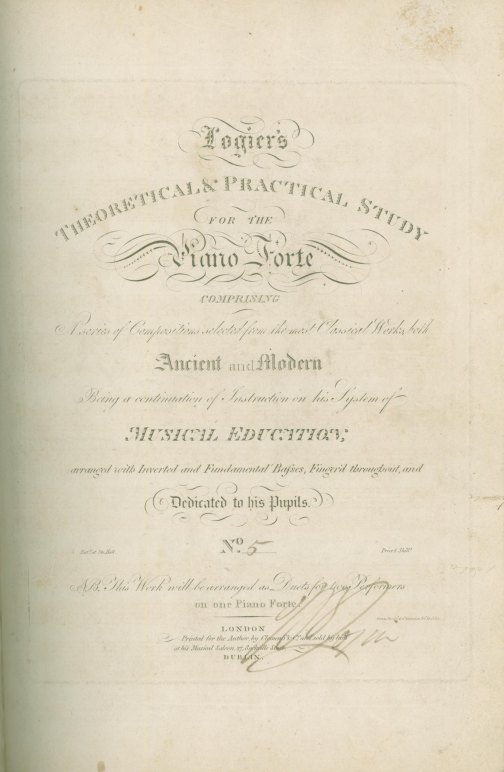 Logier's
THEORETICAL & PRACTICAL STUDY
FOR THE
Piano Forte
COMPRISING
A series of Compositions selected from the most Classical Works, both
Ancient and Modern
Being a continuation of Instruction on his System of
MUSICAL EDUCATION;
arranged with Inverted and Fundamental Baſses, Finger'd throughout, and
Dedicated to his Pupils.
Ent.d at Sta. Hall.
No. 5
Price 4 Shill.s
NB. This Work will be arranged as Duets for two Performers
on one Piano Forte.
LONDON
Printed for the Author, by Clementi & Co. and sold by him
at his Musical Saloon, 27, Sackville Street
DUBLIN.